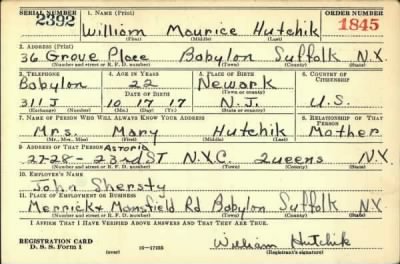 SERIAL NUMBER 1. NAME (Print) ORDER NUMBER
2392 William Maurice Hutchik 1845
(First) (Middle) (Last)
2. ADDRESS (Print)
36 Grove Place Babylon Suffolk N.Y.
(Number and street or R. F. D. number) (Town) (County) (State)
3. TELEPHONE 4. AGE IN YEARS 5. PLACE OF BIRTH 6. COUNTRY OF CITIZENSHIP
Babylon 22 Newark
DATE OF BIRTH (Town or county)
311J 10 17 17 N.J. U.S.
(Exchange) (Number) (Mo.) (Day) (Yr.) (State or country)
7. NAME OF PERSON WHO WILL ALWAYS KNOW YOUR ADDRESS 8. RELATIONSHIP OF THAT PERSON
Mrs. Mary Hutchik Mother
(Mr., Mrs., Miss) (First) (Middle) (Last)
9. ADDRESS OF THAT PERSON Astoria
27-28-23rd ST N.Y.C. Queens N.Y.
(Number and street or R. F. D. number) (Town) (County) (State)
10. EMPLOYER'S NAME
John Shersty
11. PLACE OF EMPLOYMENT OR BUSINESS
Merrick & Mansfield Rd Babylon Suffolk N.Y.
(Number and street or R. F. D. number) (Town) (County) (State)
I AFFIRM THAT I HAVE VERIFIED ABOVE ANSWERS AND THAT THEY ARE TRUE.
REGISTRATION CARD William Hutchik
D. S. S. Form 1 (over) (Registrant's signature)